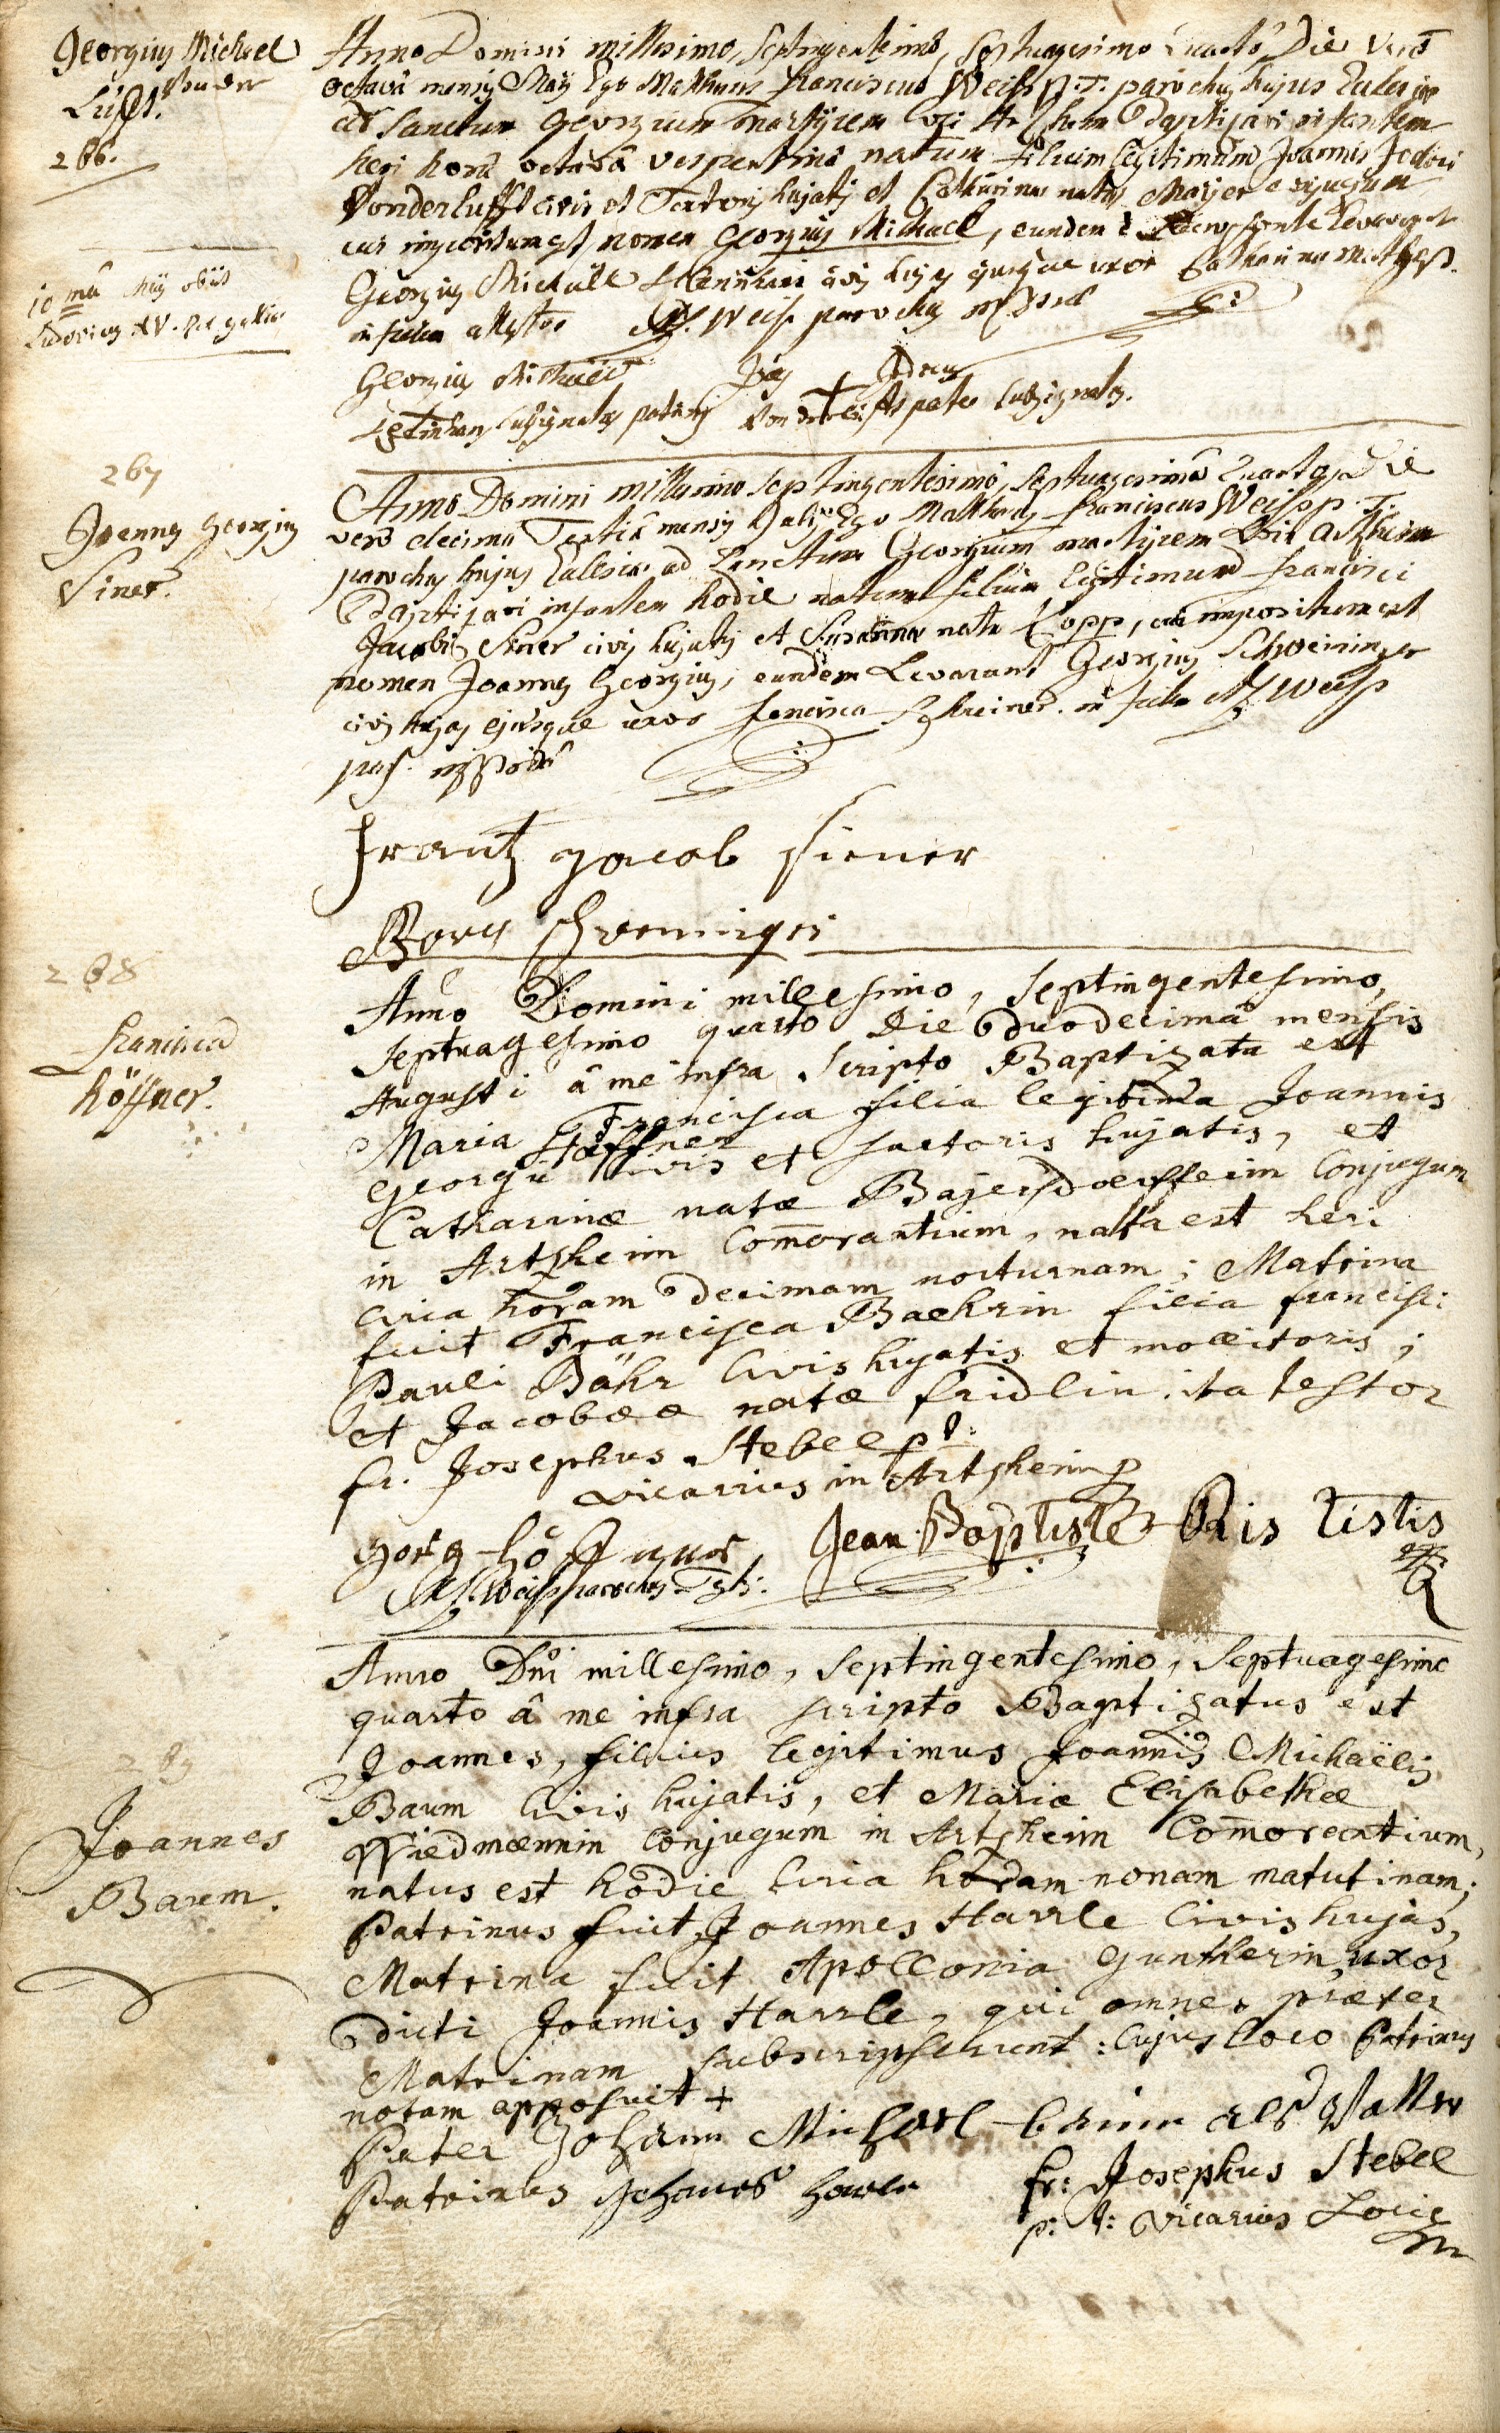 Georgius Michael
Vonder
Lufft.
266.
Anno Domini millesimo, septingentesimo, septuagesimo quarto, Die vero
octavâ mensis Maÿ Ego Mathæus Franciscus Weiss p. T. parochus hujus Ecclesiæ
ad Sanctum Georgium martyrem loci Artzheim Baptizavi infantem
heri horâ octavâ vespertinâ natum filium legitimum Joannis Jodoci
Vonderlufft civis et Textoris hujatis et Catharinæ natæ Maÿer conjugum
cui impositum est nomen Georgius Michael, eundem e sacro fonte levarunt
Georgius Michaël civis hujas ejusque uxor Catharina
in fidem attestor Mf. Weiss parochus mppriâ
10mâ Maÿ obiit
Ludovicus XV. Rex galliæ
Georgius Michaël Joes Jodocus
signatus patrini Vonderlufft pater signatus.
267
Joannes Georgius
Siner.
Anno Domini millesimo septingentesimo, septuagesimo quarto, Die
vero decimâ Tertiâ mensis Julÿ Ego Mathæus Franciscus Weiss p. T.
parochus hujus Ecclesiæ ad Sanctum Georgium martyrem loci Artzheim
Baptizavi infantem hodie natum filium legitimum Francisci
Jacobi Siner civis hujatis et Susannæ natæ Kopp, cui impositum est
nomen Joannes Georgius, eundem levarunt Georgius Schweininger
civis hujas ejusque uxor Francisca Schreiner. in fidem Mf. Weiss
par. mppriâ
Frantz Jacob Siener
Georg Schweniger
268
Francisca
Höffner.
Anno Domini millesimo, septingentesimo,
septuagesimo quarto Die duodecimâ mensis
Augusti â me infra scripto Baptizata est
Maria Francisca filia legitima Joannis
Georgii Höffner civis et sartoris hujatis, et
Catharinæ natæ Bajersdoerfferin Conjugum
in Artzheim Com̄orantium, nata est heri
circa horam decimam nocturnam; Matrina
fuit Francisca Baehrin filia Francisci
Pauli Bähr Civis hujatis et molitoris,
et Jacobææ natæ Fridlin. ita testor
fr. Josephus Stebel p.t:
vicarius in Artzheim
Görg Höffner Jean Baptiste Ris Testis
Mf. Weiss parochus Tstis.
269
Joannes
Baum.
Anno Dn̄i millesimo, septingentesimo, septuagesimo
quarto â me infra scripto Baptizatus est
Joannes, filius legitimus Joannis Michaëlis
Baum Civis hujatis, et Mariæ Elisabethæ
Wiedmænnin Conjugum in Artzheim Com̄orantium,
natus est hodie circa horam nonam matutinam;
Patrinus fuit Joannes Harrle Civis hujas,
Matrina fuit Apollonia Guntherin, uxor
dicti Joannis Harrle, qui omnes præter
Matrinam subscripserunt: cujus loco Patrinus
notam apposuit +
Pater Johann Michael baum als Vatter
Patrinus Johannes harle fr: Josephus Stebel
p: t: vicarius Loci